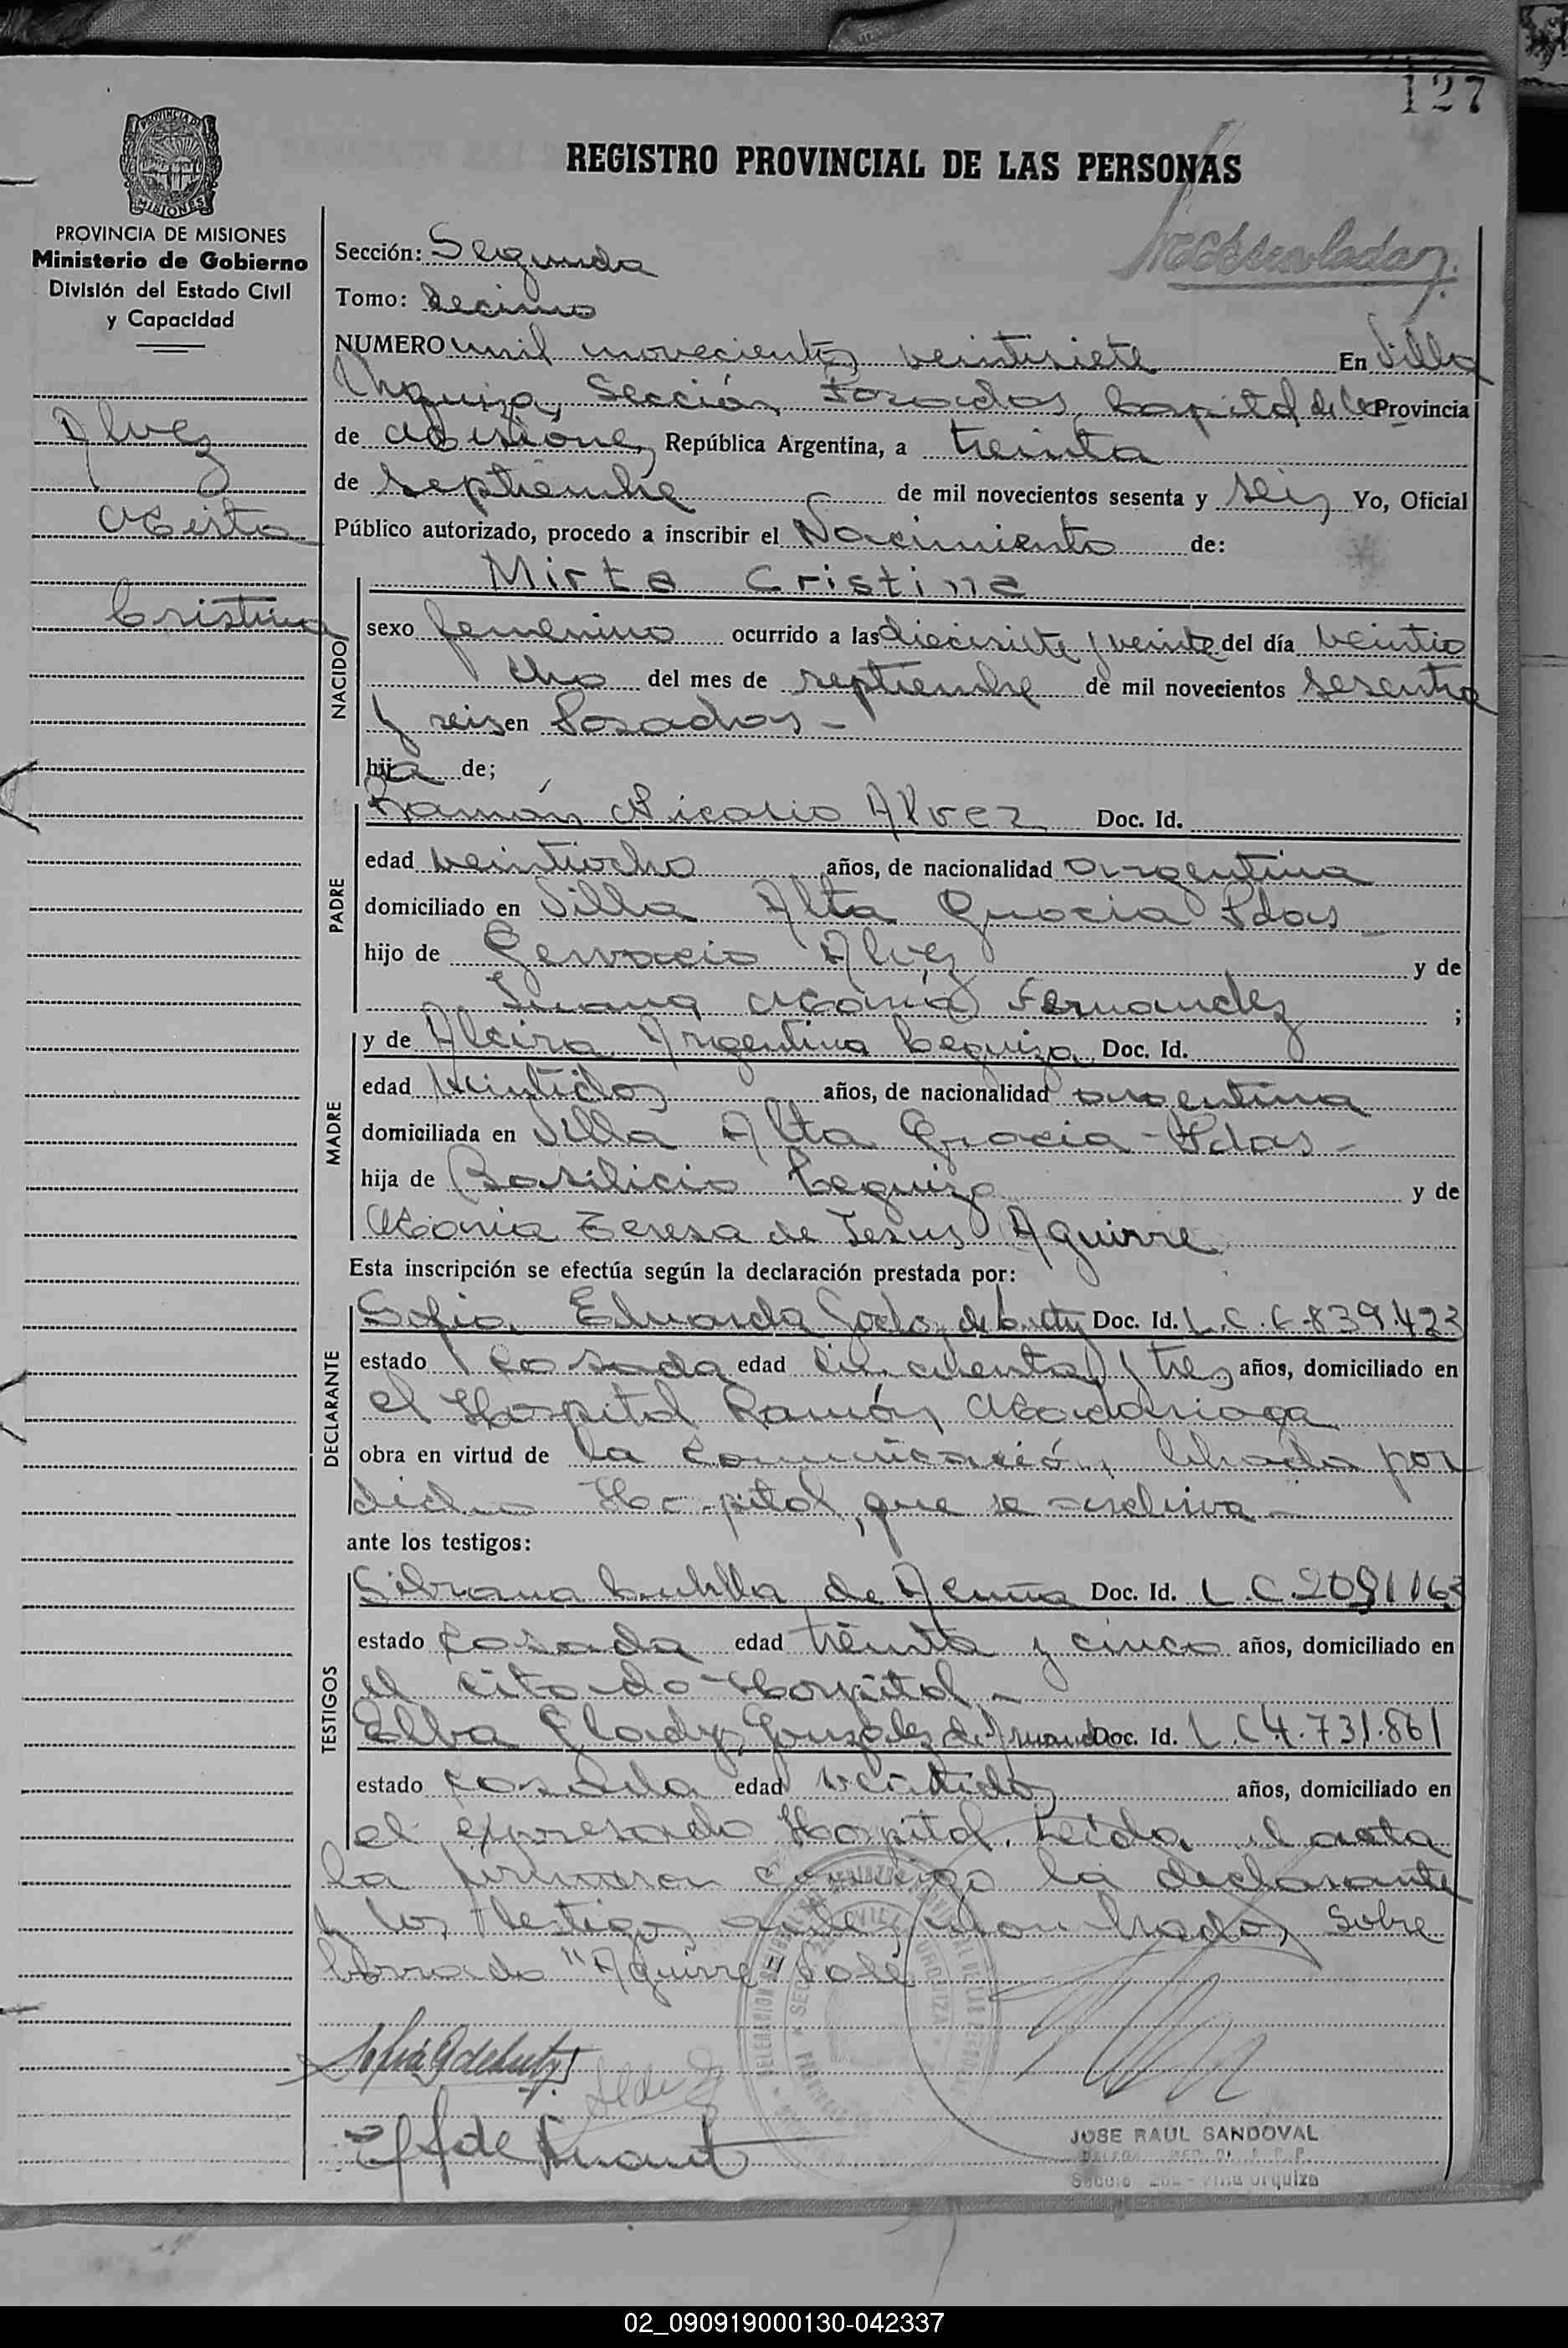 127
REGISTRO PROVINCIAL DE LAS PERSONAS
PROVINCIA DE
MISIONES
PROVINCIA DE MISIONES
Ministerio de Gobierno
División del Estado Civil
y Capacidad
Alvez
Mirta
Cristina
Sección: Segunda
Tomo: Decimo
NUMERO mil novecientos veintisiete En Villa
Urquiza, Sección Posadas, Capital de la Provincia
de Misiones, República Argentina, a treinta
de septiembre de mil novecientos sesenta y seis Yo, Oficial
Público autorizado, procedo a inscribir el Nacimiento de:
Mirta Cristina
NACIDO
sexo femenino ocurrido a las diecisiete y veinte del día veintio
cho del mes de septiembre de mil novecientos sesenta
y seis en Posadas -
hija de;
PADRE
Ramón Nicasio Alvez Doc. Id.
edad veintiocho años, de nacionalidad argentina
domiciliado en Villa Alta Gracia Pdas
hijo de Gervacio Alvez y de
Juana María Fernandez ;
MADRE
y de Alcira Argentina Leguiza Doc. Id.
edad veintidos años, de nacionalidad argentina
domiciliada en Villa Alta Gracia - Pdas -
hija de Basilicio Leguiza y de
Maria Teresa de Jesus Aguirre
Esta inscripción se efectúa según la declaración prestada por:
DECLARANTE
Sofia Eduarda de Doc. Id. L.C. 6.839.423
estado casada edad cincuenta y tres años, domiciliado en
el Hospital Ramón Madariaga
obra en virtud de la comunicación librada por
dicho Hospital, que se archiva -
ante los testigos:
TESTIGOS
de Acuña Doc. Id. L.C. 2091163
estado casada edad treinta y cinco años, domiciliado en
el citado Hospital -
Elba Glady Gonzalez de Doc. Id. L.C 4.731.861
estado casada edad veintidos años, domiciliado en
el expresado Hospital. Leida el acta
la firmaron conmigo la declarante
y los testigos antes nombrados, Sobre
borrado "Aguirre" Vale
JOSE RAUL SANDOVAL
02_090919000130-042337